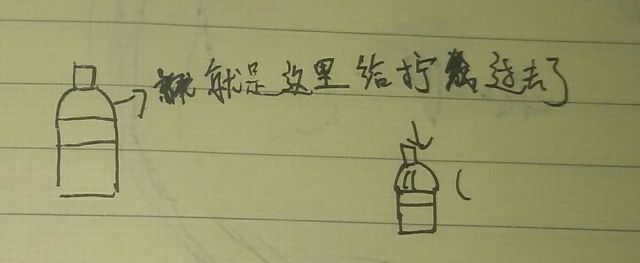 就是这里给拧过去了